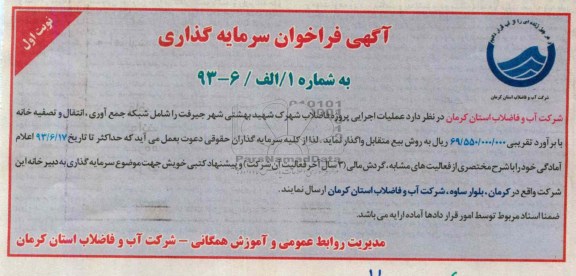 نوبت اول
هر چیز زنده‌ای را از آب قرار دادیم
شرکت آب و فاضلاب استان کرمان
آگهی فراخوان سرمایه گذاری
به شماره ۱/الف / ۶-۹۳
شرکت آب و فاضلاب استان کرمان در نظر دارد عملیات اجرایی پروژه فاضلاب شهرک شهید بهشتی شهر جیرفت را شامل شبکه جمع آوری ، انتقال و تصفیه خانه
با برآورد تقریبی ۶۹/۵۵۰/۰۰۰/۰۰۰ ریال به روش بیع متقابل واگذار نماید . لذا از کلیه سرمایه گذاران حقوقی دعوت بعمل می آید که حداکثر تا تاریخ ۹۳/۶/۱۷ اعلام
آمادگی خود را با شرح مختصری از فعالیت های مشابه ، گردش مالی (۳ سال آخر فعالیت آن شرکت) و پیشنهاد کتبی خویش جهت موضوع سرمایه گذاری به دبیر خانه این
شرکت واقع در کرمان ، بلوار ساوه ، شرکت آب و فاضلاب استان کرمان ارسال نمایند .
ضمنا اسناد مربوط توسط امور قرار دادها آماده ارایه می باشد.
مدیریت روابط عمومی و آموزش همگانی - شرکت آب و فاضلاب استان کرمان